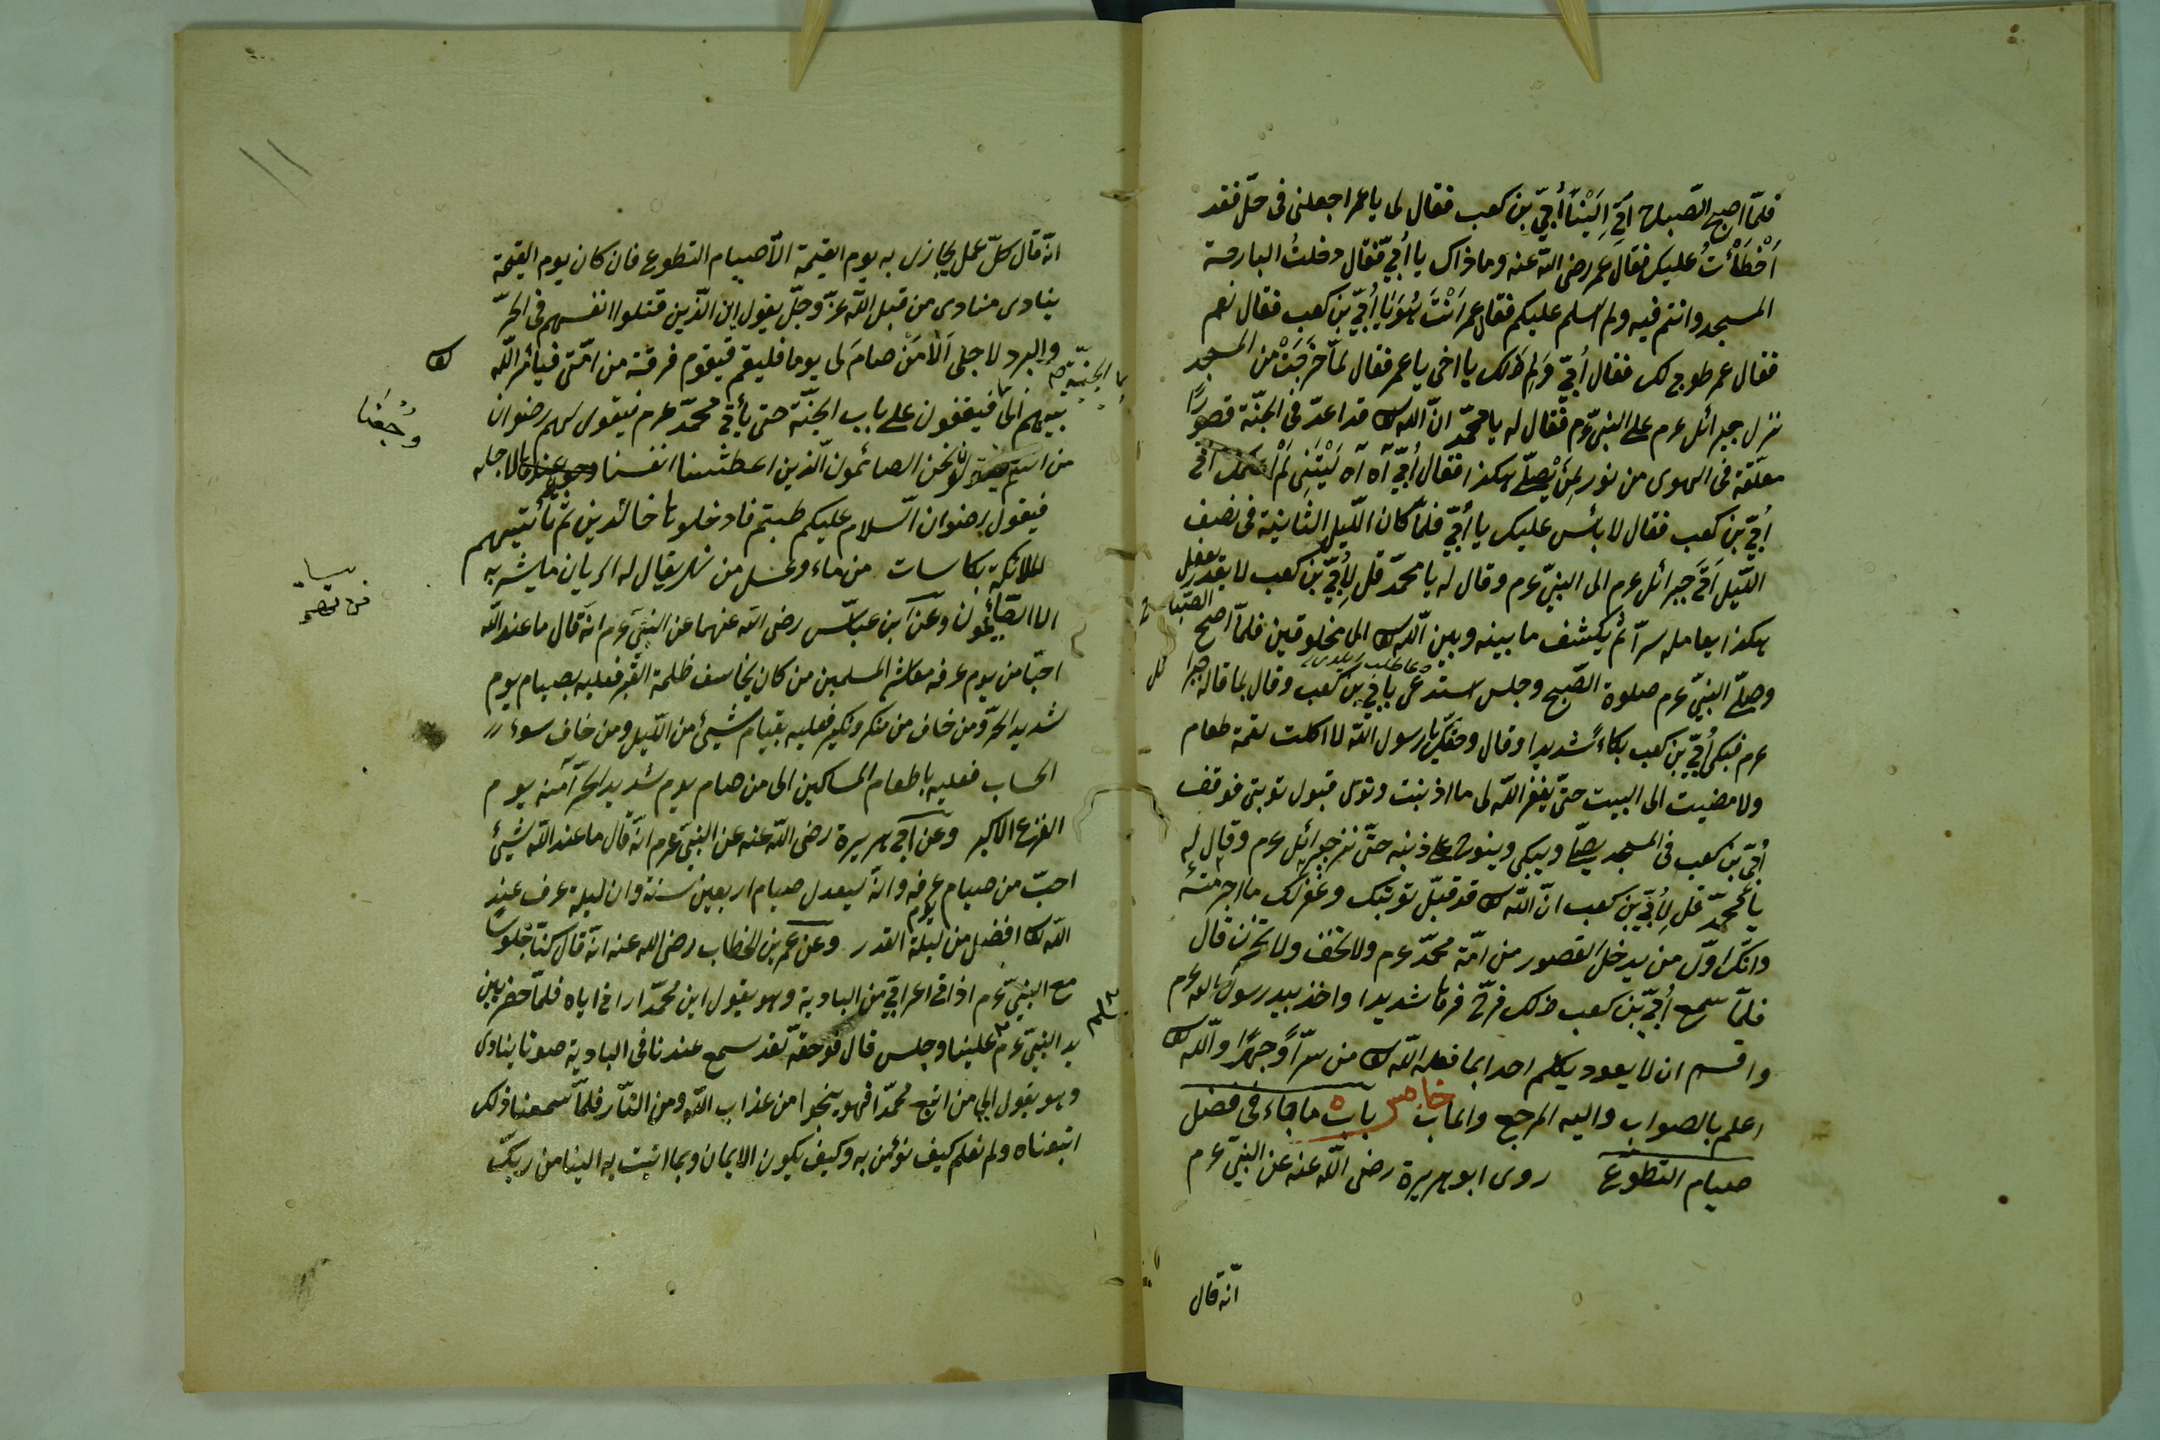 فلمّا اصبح الصّباح اَتى اِلَيْنَا اُبَيّ بن كعب فقال لى يا عمر اجعلنى فى حلّ فقد
اَخْطَاْتُ عليك فقال عمر رضى الله عنه وما ذاك يا اُبَيّ فقال دخلتُ البارحة
المسجد وانتم فيه ولم اسلم عليكم فقال عمر اَنْتَ هُوَ يَا اُبَيّ بن كعب فقال نعم
فقال عمر طوبى لك فقال اُبَيّ وَلِمَ ذلك يا اخى يا عمر فقال لمّا خَرَجَتْ من المسجد
نزل جبرائل عم على النبىّ عم فقال له يا محمّد انّ الله تعا قد اعدّ فى الجنّة قصورًا
معلّقة فى الهوى من نور لِمَنْ يُصلّى هكذا فقال اُبَيّ آه آه لَيْتَنِى لَمْ
اُبَيّ بن كعب فقال لا بأس عليك يا اُبَيّ فلمّا كان اللّيل الثانية فى نصف
اللّيل اَتَى جبرائل عم الى النبىّ عم وقال له يا محمّد قل لِاُبَيّ بن كعب لا يقدر يفعل
هكذا يعامله سرّا ثم يكشف ما بينه وبين الله تعا الى مخلوقين فلمّا اصبح الصّباح
وصلّى النبىّ عم صلوة الصّبح وجلس استدعى باُبَيّ بن كعب وقال بما قاله جبرا ئل
عم فبكى اُبَيّ بن كعب بكاءً شديدا وقال وحقك يا رسول الله لا اكلت لقمة طعام
ولا مضيت الى البيت حتّى يغفر الله لى ما اذنبت وترى قبول توبتى فوقف
اُبَيّ بن كعب فى المسجد يصلّى ويبكى وينوح على ذنبه حتّى نزل جبرائل عم وقال له
يا محمّد قل لِاُبَيّ بن كعب انّ الله تعا قد قبّل توبتك وغفر لك ما اجرمته
وانّك اوّل من يدخل القصور من امّة محمّد عم ولا تخف ولا تحزن قال
فلمّا سمع اُبَيّ بن كعب ذلك فرح فرحا شديدا واخذ بيد رسول الله عم
واقسم ان لا يعود يكلم احدا بما فعله الله تعا من سرّا وَجهرًا والله تعا
اعلم بالصواب واليه المرجع والمآب خامس باب ٥ ما جاء فى فضل
صيام التطوّع روى ابو هريرة رضى الله عنه عن النبىّ عم
انّه قال
انّه قال كلّ عمل يجازى به يوم القيمة الّا صيام التطوع فان كان يوم القيمة
ينادى منادى من قبل الله عزّ وجلّ يقول اين الّذين قتلوا انفسهم فى الحرّ
والبرد لاجلى اَلَا مَنْ صامَ لى يوما فليقم فيقوم فرقة من امّتى فيأمر الله تعا
بهم الى الجنّة فيقفون على باب الجنّة حتى يأتى محمّد عم فيقول لهم رضوان
من انتم نحن الصائمون الّذين اعطشنا انفسنا وَجُعْنَا لاجله
فيقول رضوان السّلام عليكم طبتم فادخلوها خالدين ثم تأتيهم
الملائكة بكاسات من ماء وعسل من نهر يقال له الريان ما يشربه
الّا الصّائمون وعن ابن عبّاس رضى الله عنهما عن النبىّ عم انه قال ما عند الله
احبّ من يوم عرفه معاشر المسلمين من كان يخاف ظلمة القبر فعليه بصيام يوم
شديد الحرّ ومن خاف من منكر ونكير فعليه بقيام شيئ من اللّيل ومن خاف سوء
الحساب فعليه باطعام المساكين الى من صام يوم شديد الحرّ آمنه يوم
الفزع الاكبر وعن ابى هريرة رضى الله عنه عن النبىّ عم انّه قال ما عند الله شيئ
احبّ من صيام يوم عرفه وانّه ليعدل صيام اربعين سنة وان ليلة عرف عند
الله تعا افضل من ليلة القدر وعن عمر بن الخطاب رضى الله عنه انّه قال كنّا جلوسا
مع النبىّ عم اذ اتى اعرابىّ من البادية وهو يقول اين محمّد ارانى اياه فلمّا حضر بين
يد النبىّ عم سلم علينا وجلس قال فوحقه لقد سمع عندنا فى البادية صوتا ينادى
وهو يقول الى من اتبع محمّدا فهو ينجوا من عذاب الله ومن النّار فلمّا سمعنا ذلك
اتبعناه ولم نعلم كيف نؤمن به وكيف يكون الايمان وبما اتيت به الينا من ربّك